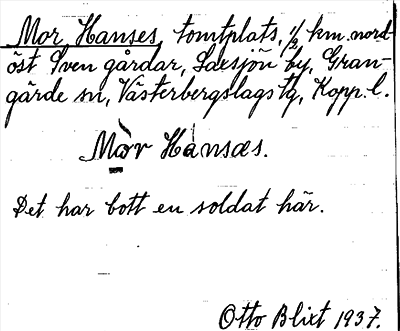 Mor Hanses, tomtplats, ½ km. nord-
öst Sven gårdar, Laxsjön by, Gran-
gärde sn, Västerbergslags tg, Kopp. l.
Mòr Hánsæs.
Det har bott en soldat här.
Otto Blixt 1937.